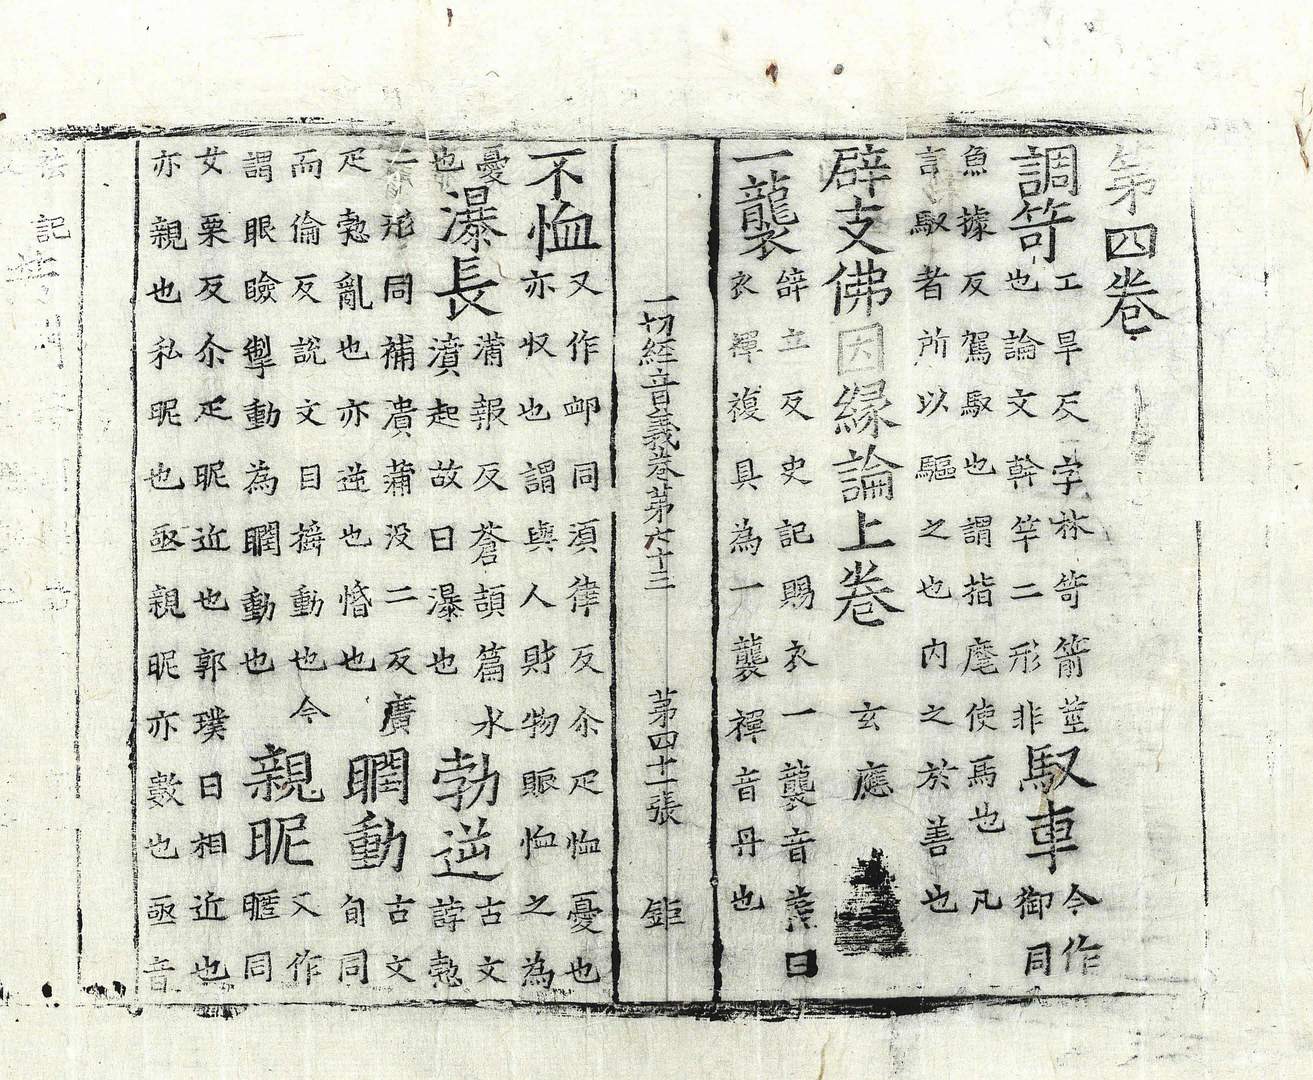 第四卷
調笴工旱反字林笴箭莖
也論文幹竿二形非馭車今作
御同
魚據反駕馭也謂指麾使馬也凡
言馭者所以驅之也内之於善也
辟支佛因緣論上卷 玄應
一襲辝立反史記賜衣一襲音義曰
衣襌複具為一襲襌音丹也
一切經音義卷第七十三 第四十一張 鉅
不恤又作卹同須律反尒疋恤憂也
亦収也謂與人財物賑恤之為
憂
也瀑長蒲報反蒼頡篇水
濆起故曰瀑也勃逆古文
誖㪍
二形同補潰蒲没二反廣
疋㪍亂也亦逆也惛也瞤動古文
旬同
又作
而倫反說文目摇動也今
謂眼瞼掣動為瞤動也親昵暱同
女栗反尒疋昵近也郭璞曰相近也
亦親也私昵也亟親昵亦數也亟音